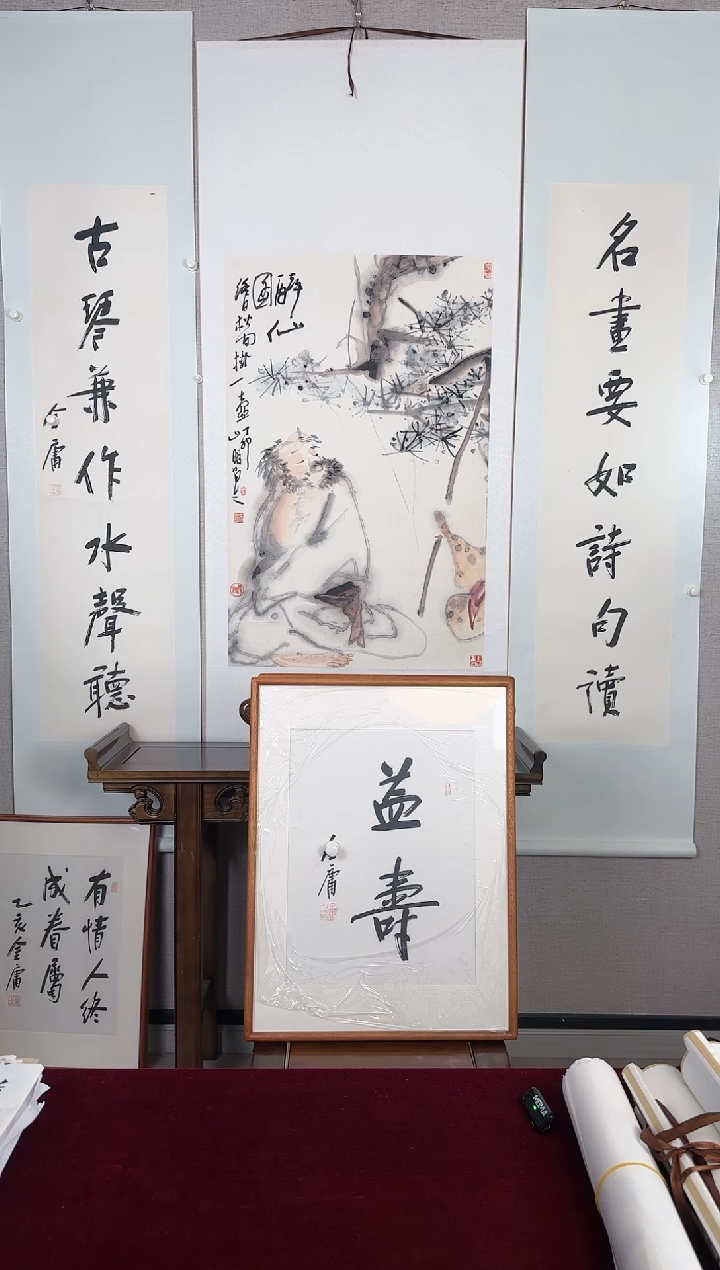 名畫要如詩句讀
古琴兼作水聲聽
金庸
醉仙
圖
益壽
金庸
有情人終
成眷屬
乙亥金庸